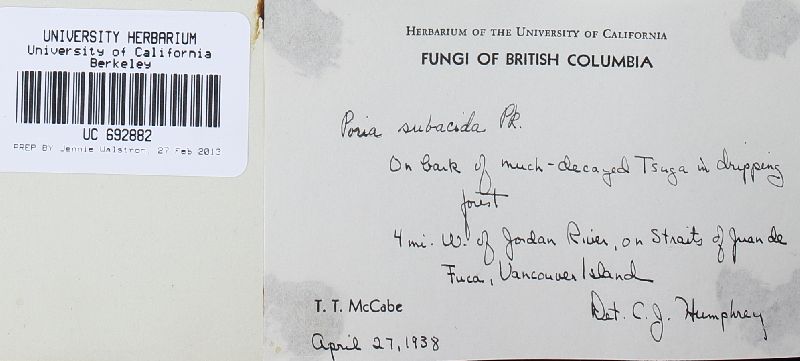 UNIVERSITY HERBARIUM
University of California
Berkeley
UC 692882
PREP BY Jennie Walstrom, 27 Feb 2013
HERBARIUM OF THE UNIVERSITY OF CALIFORNIA
FUNGI OF BRITISH COLUMBIA
Poria subacida Pk.
On bark of much-decayed Tsuga in dripping
forest
4 mi. W. of Jordan River, on Straits of Juan de
Fuca, Vancouver Island
T. T. McCabe
Det. C. J. Humphrey
April 27, 1938